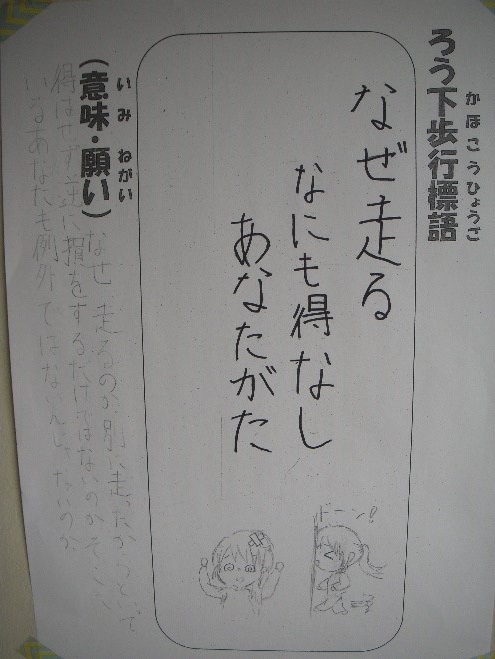 ろう下歩行標語
かほこうひょうご
なぜ走る
なにも得なし
あなたがた
ドーン!!
(意味・願い)
いみ ねがい
なぜ 走るのか 別に走ったからといって
得はせず逆に損をするだけではないのかそして
いるあなたも例外ではないんじゃないのか